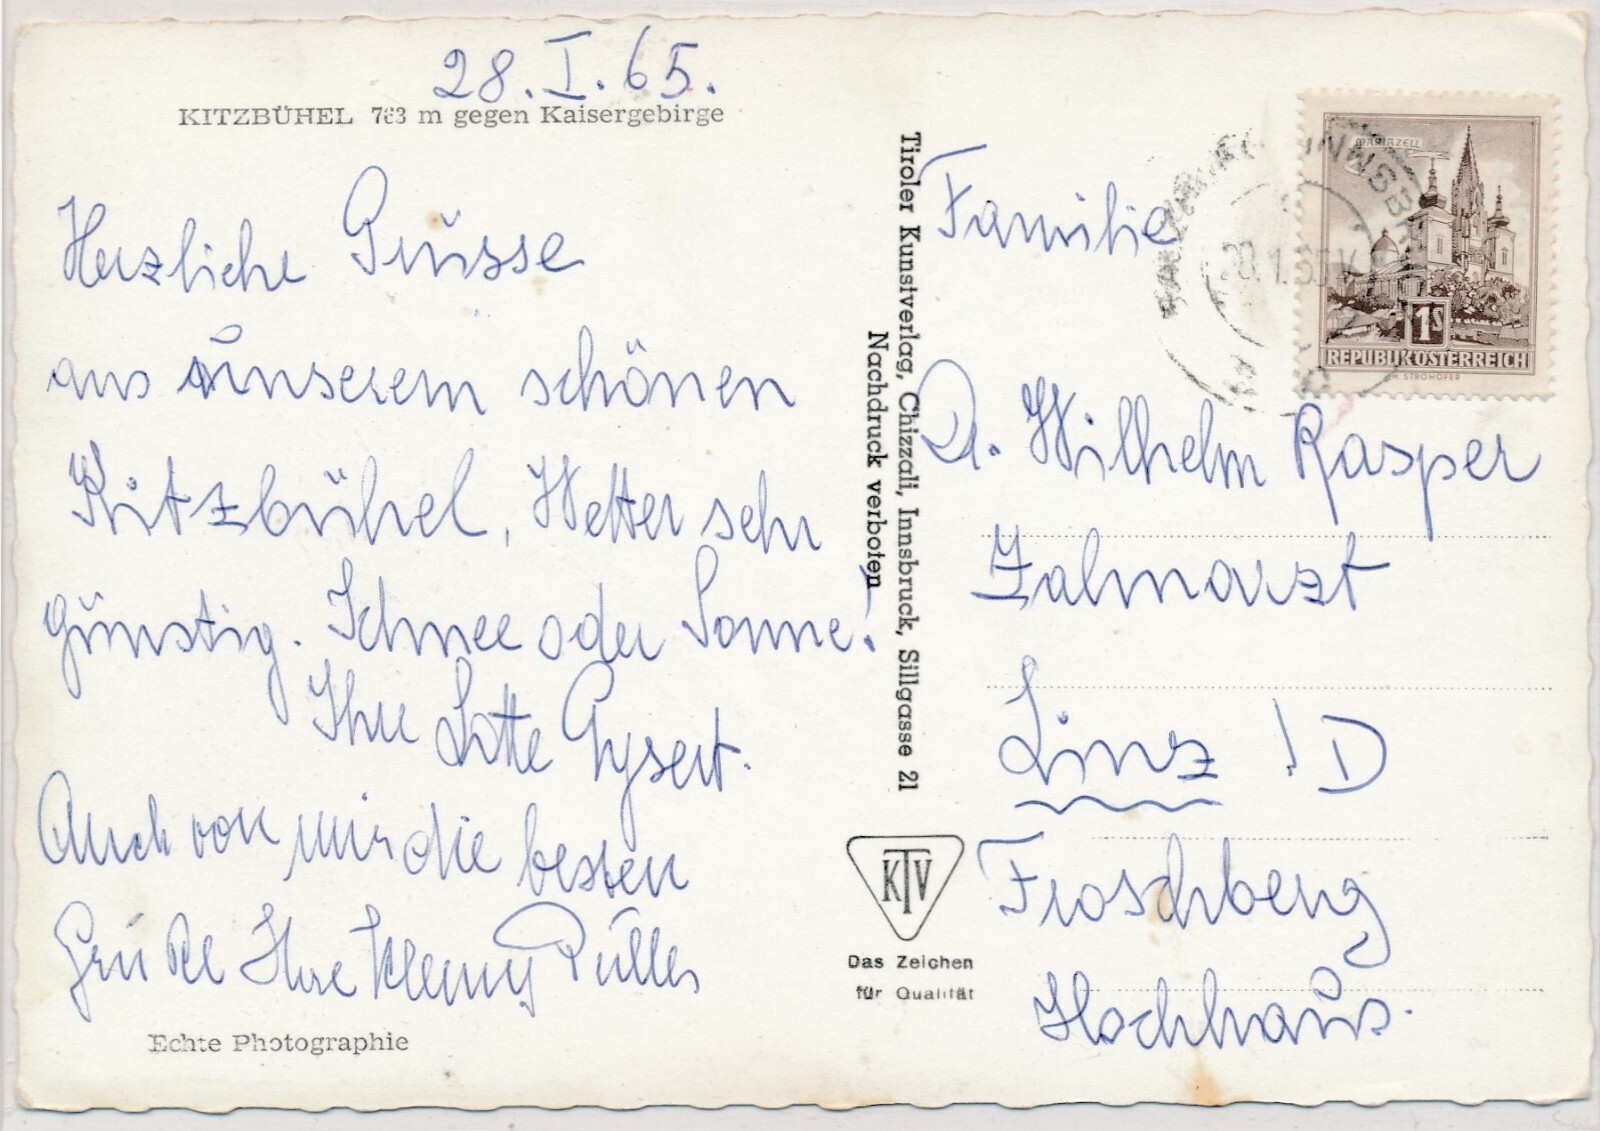 28.I.65.
KITZBÜHEL 763 m gegen Kaisergebirge
Herzliche Grüsse
aus unserem schönen
Kitzbühel, Wetter sehr
günstig. Schnee oder Sonne!
Ihre Lotte
Auch von mir die besten
Grüße Ihre
Echte Photographie
Tiroler Kunstverlag, Chizzali, Innsbruck, Sillgasse 21
Nachdruck verboten
KTV
Das Zeichen
für Qualität
MARIAZELL
1S
REPUBLIK ÖSTERREICH
H. STROHOFER
Familie
Dr. Wilhelm Rasper
Zahnarzt
Linz /D
Froschberg
Hochhaus.